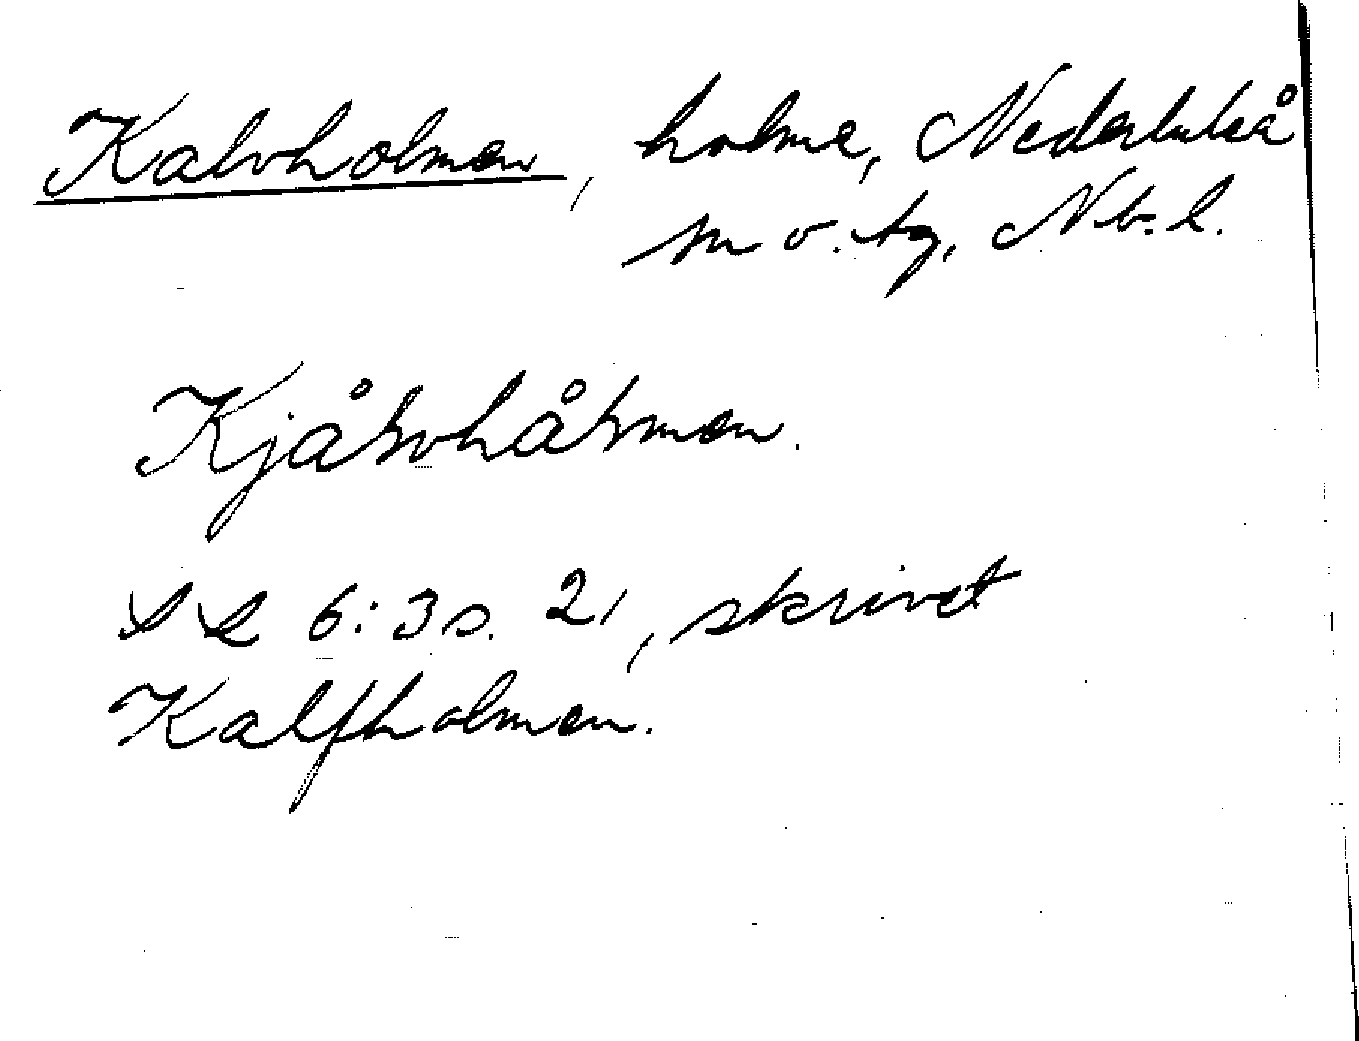 Kalvholmen, holme, Nederluleå
sn o. tg, Nb. l.
Kjåłvhåłmen.
SL 6:3 s. 21, skrivet
Kalfholmen.